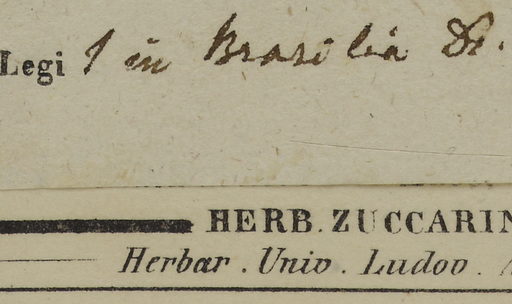 Legi in Brasilia &.
HERB. ZUCCARIN
Herbar. Univ. Ludov.